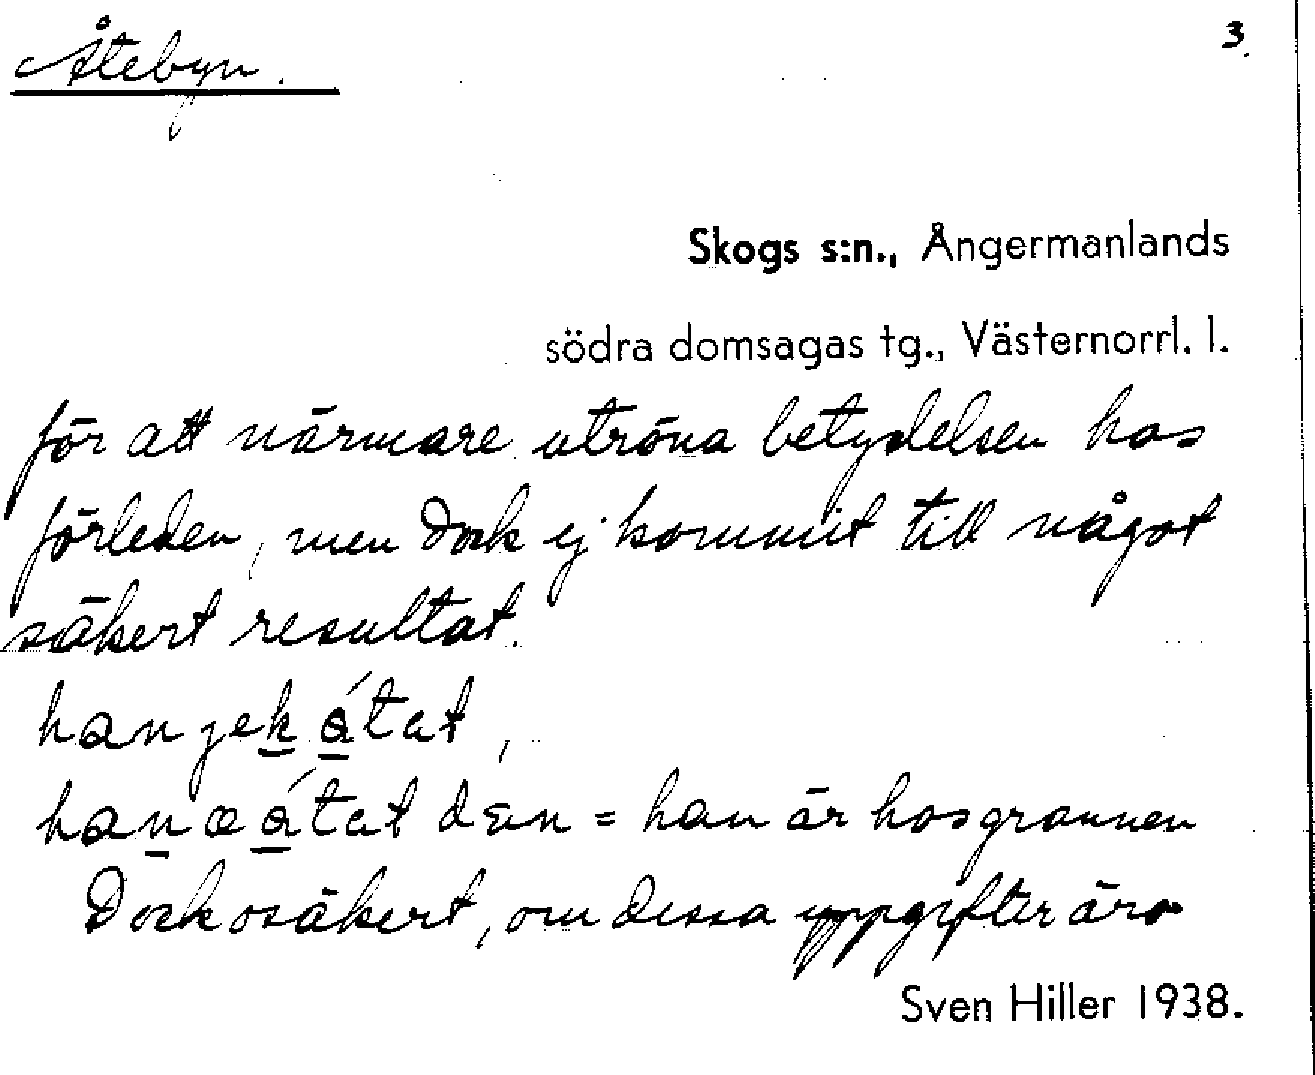 Åtebyn.
3.
Skogs s:n., Ångermanlands
södra domsagas tg., Västernorrl. l.
för att närmare utröna betydelsen hos
förleden, men dock ej kommit till något
säkert resultat.
han jek åtat,
han æ åtat dɛn = han är hos grannen
Dock osäkert, om dessa uppgifter äro
Sven Hiller 1938.